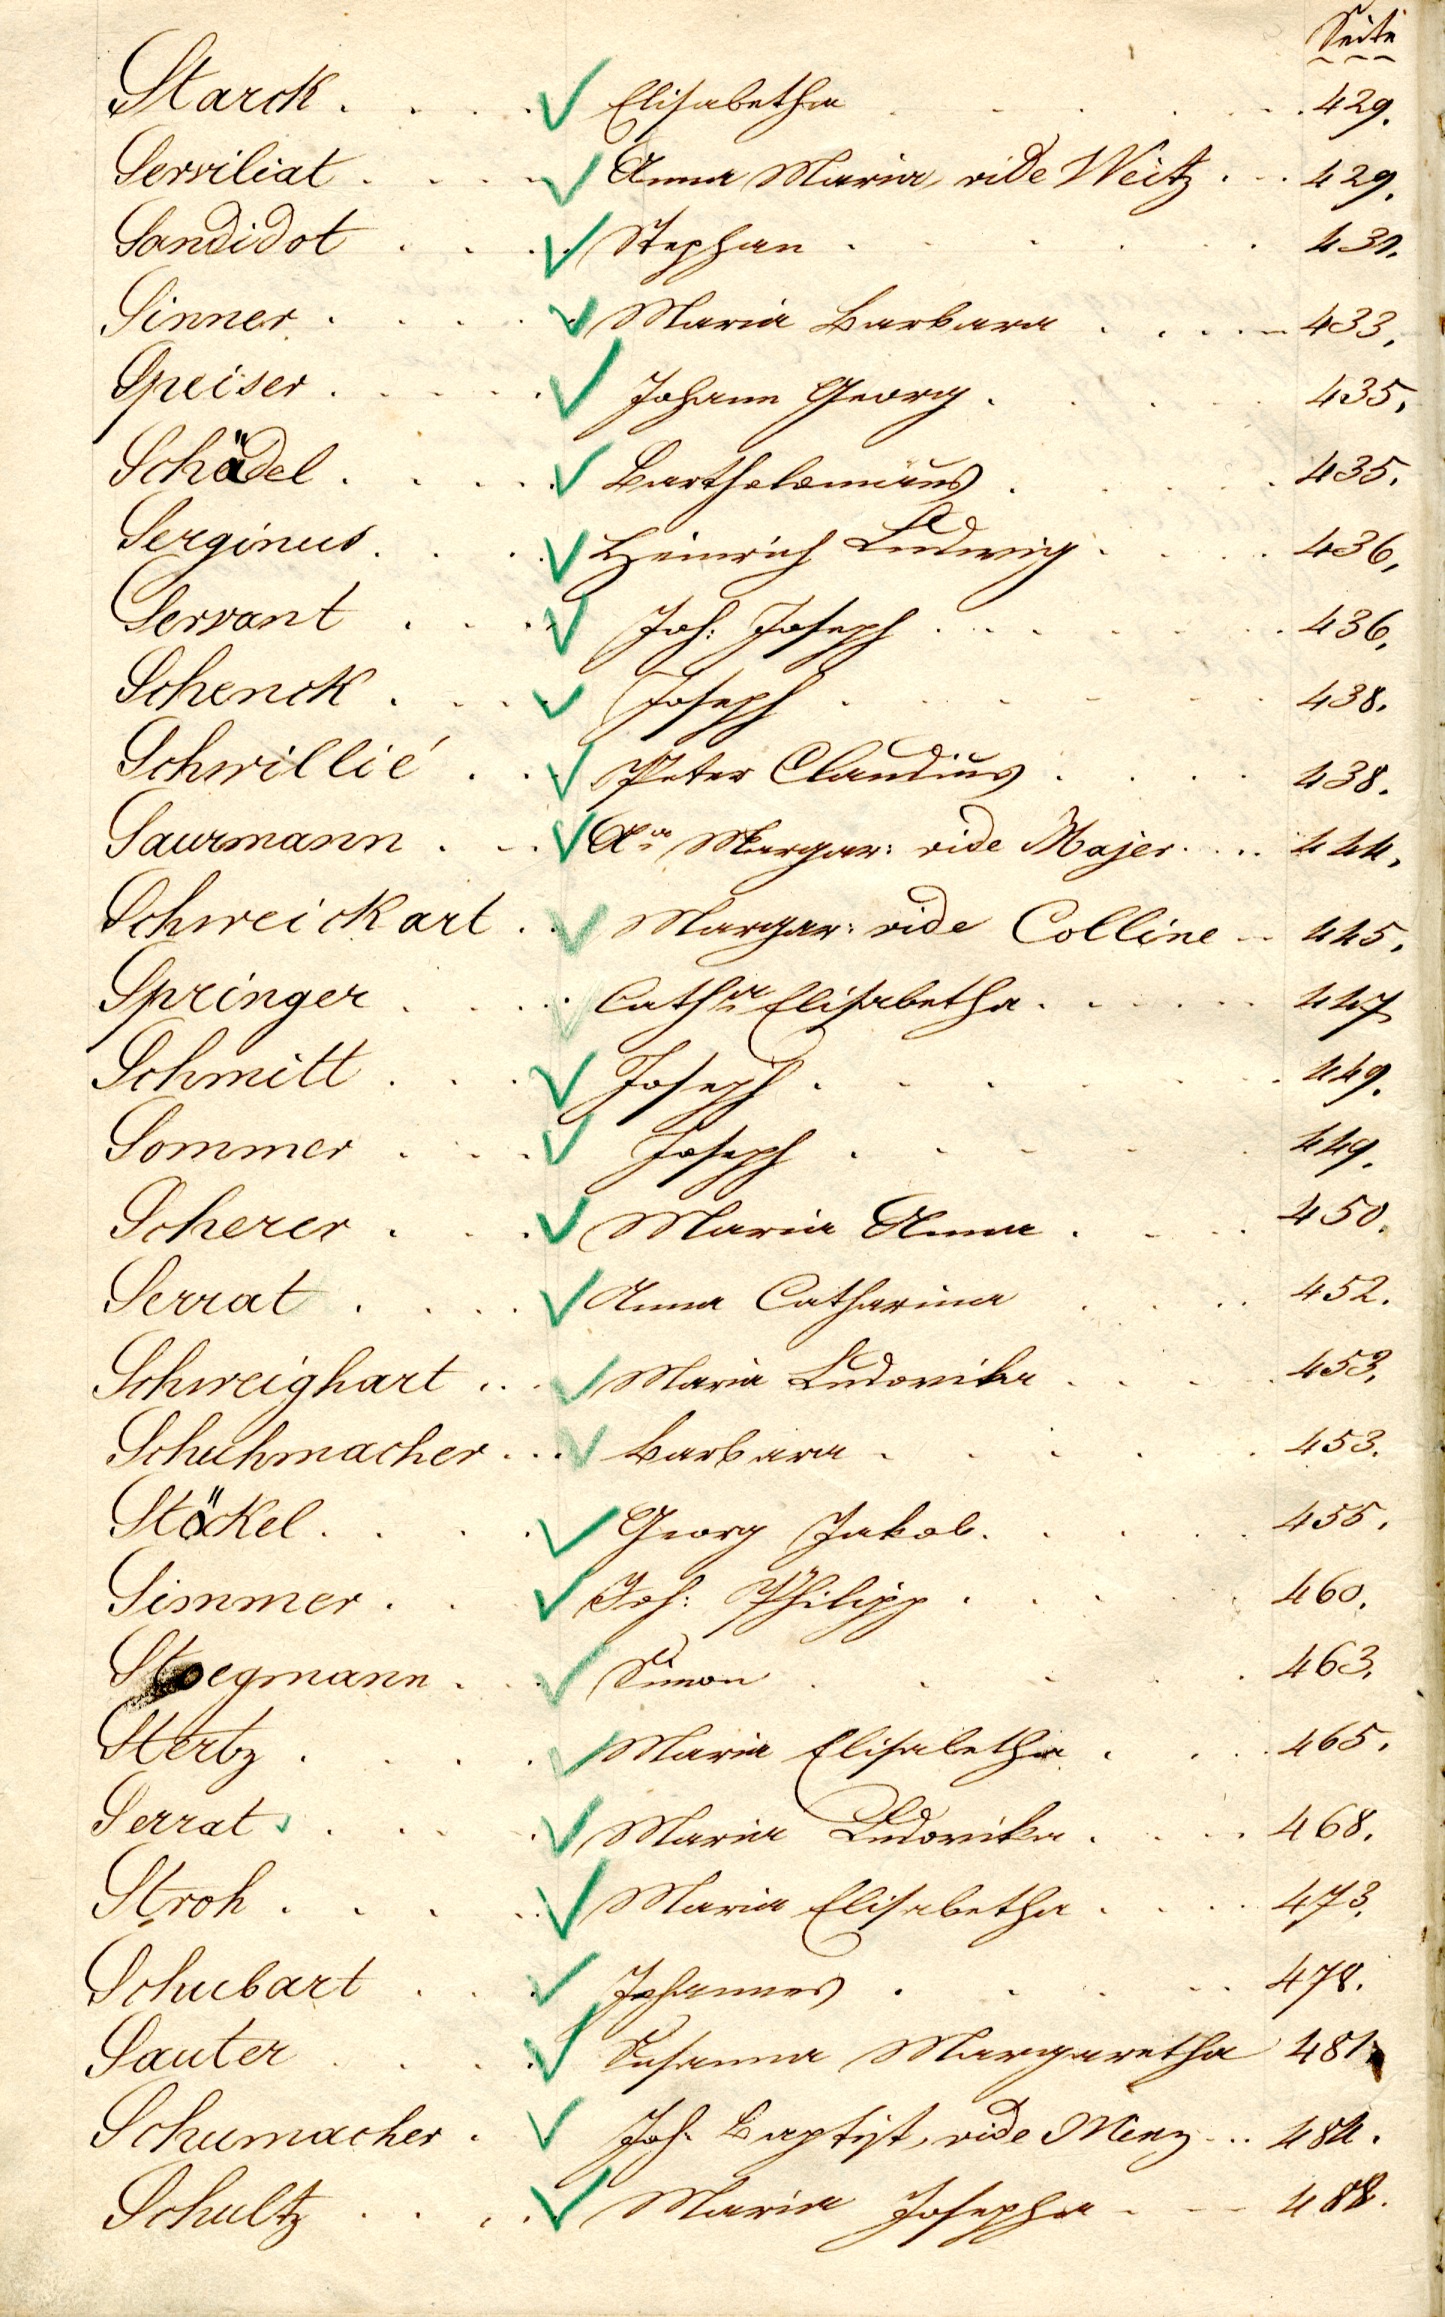 Seite
Starck . . . . Elisabetha . . . . 429.
Serviliat . . . . Anna Maria, vide Weitz . . . 429.
Sandidot . . . . Stephan . . . . 431.
Sinner . . . . Maria Barbara . . . . 433.
Speiser . . . . Johann Georg . . . . 435.
Schädel . . . . Bartholomäus . . . . 435.
Serginus . . . . Heinrich Ludwig . . . . 436.
Servant . . . . Joh: Joseph . . . . 436.
Schenck . . . . Joseph . . . . 438.
Schwillié . . . Peter Claudius . . . . 438.
Saurmann . . . Aa Margar: vide Majer . . . . 444.
Schweickart . . Margar: vide Colline . . 445.
Springer . . . . Catha Elisabetha . . . . 447
Schmitt . . . . Joseph . . . . 449.
Sommer . . . . Joseph . . . . 449.
Scherer . . . . Maria Anna . . . . 450.
Serrat . . . . Anna Catharina . . . . 452.
Schweighart . . . Maria Ludovika . . . . 453.
Schuhmacher . . . Barbara . . . . 453.
Stäkel . . . . Georg Jakob . . . . 455.
Simmer . . . . Joh: Philipp . . . . 460.
Stoegmann . . . Simon . . . . 463.
Stertz . . . . Maria Elisabetha . . . . 465.
Serrat . . . . Maria Ludovika . . . . 468.
Stroh . . . . Maria Elisabetha . . . . 473.
Schubart . . . Johannes . . . . 478.
Sauter . . . . Susanna Margaretha 481.
Schumacher . . Joh. Baptist, vide Menz . . . 484.
Schultz . . . . Maria Josepha . . . 488.